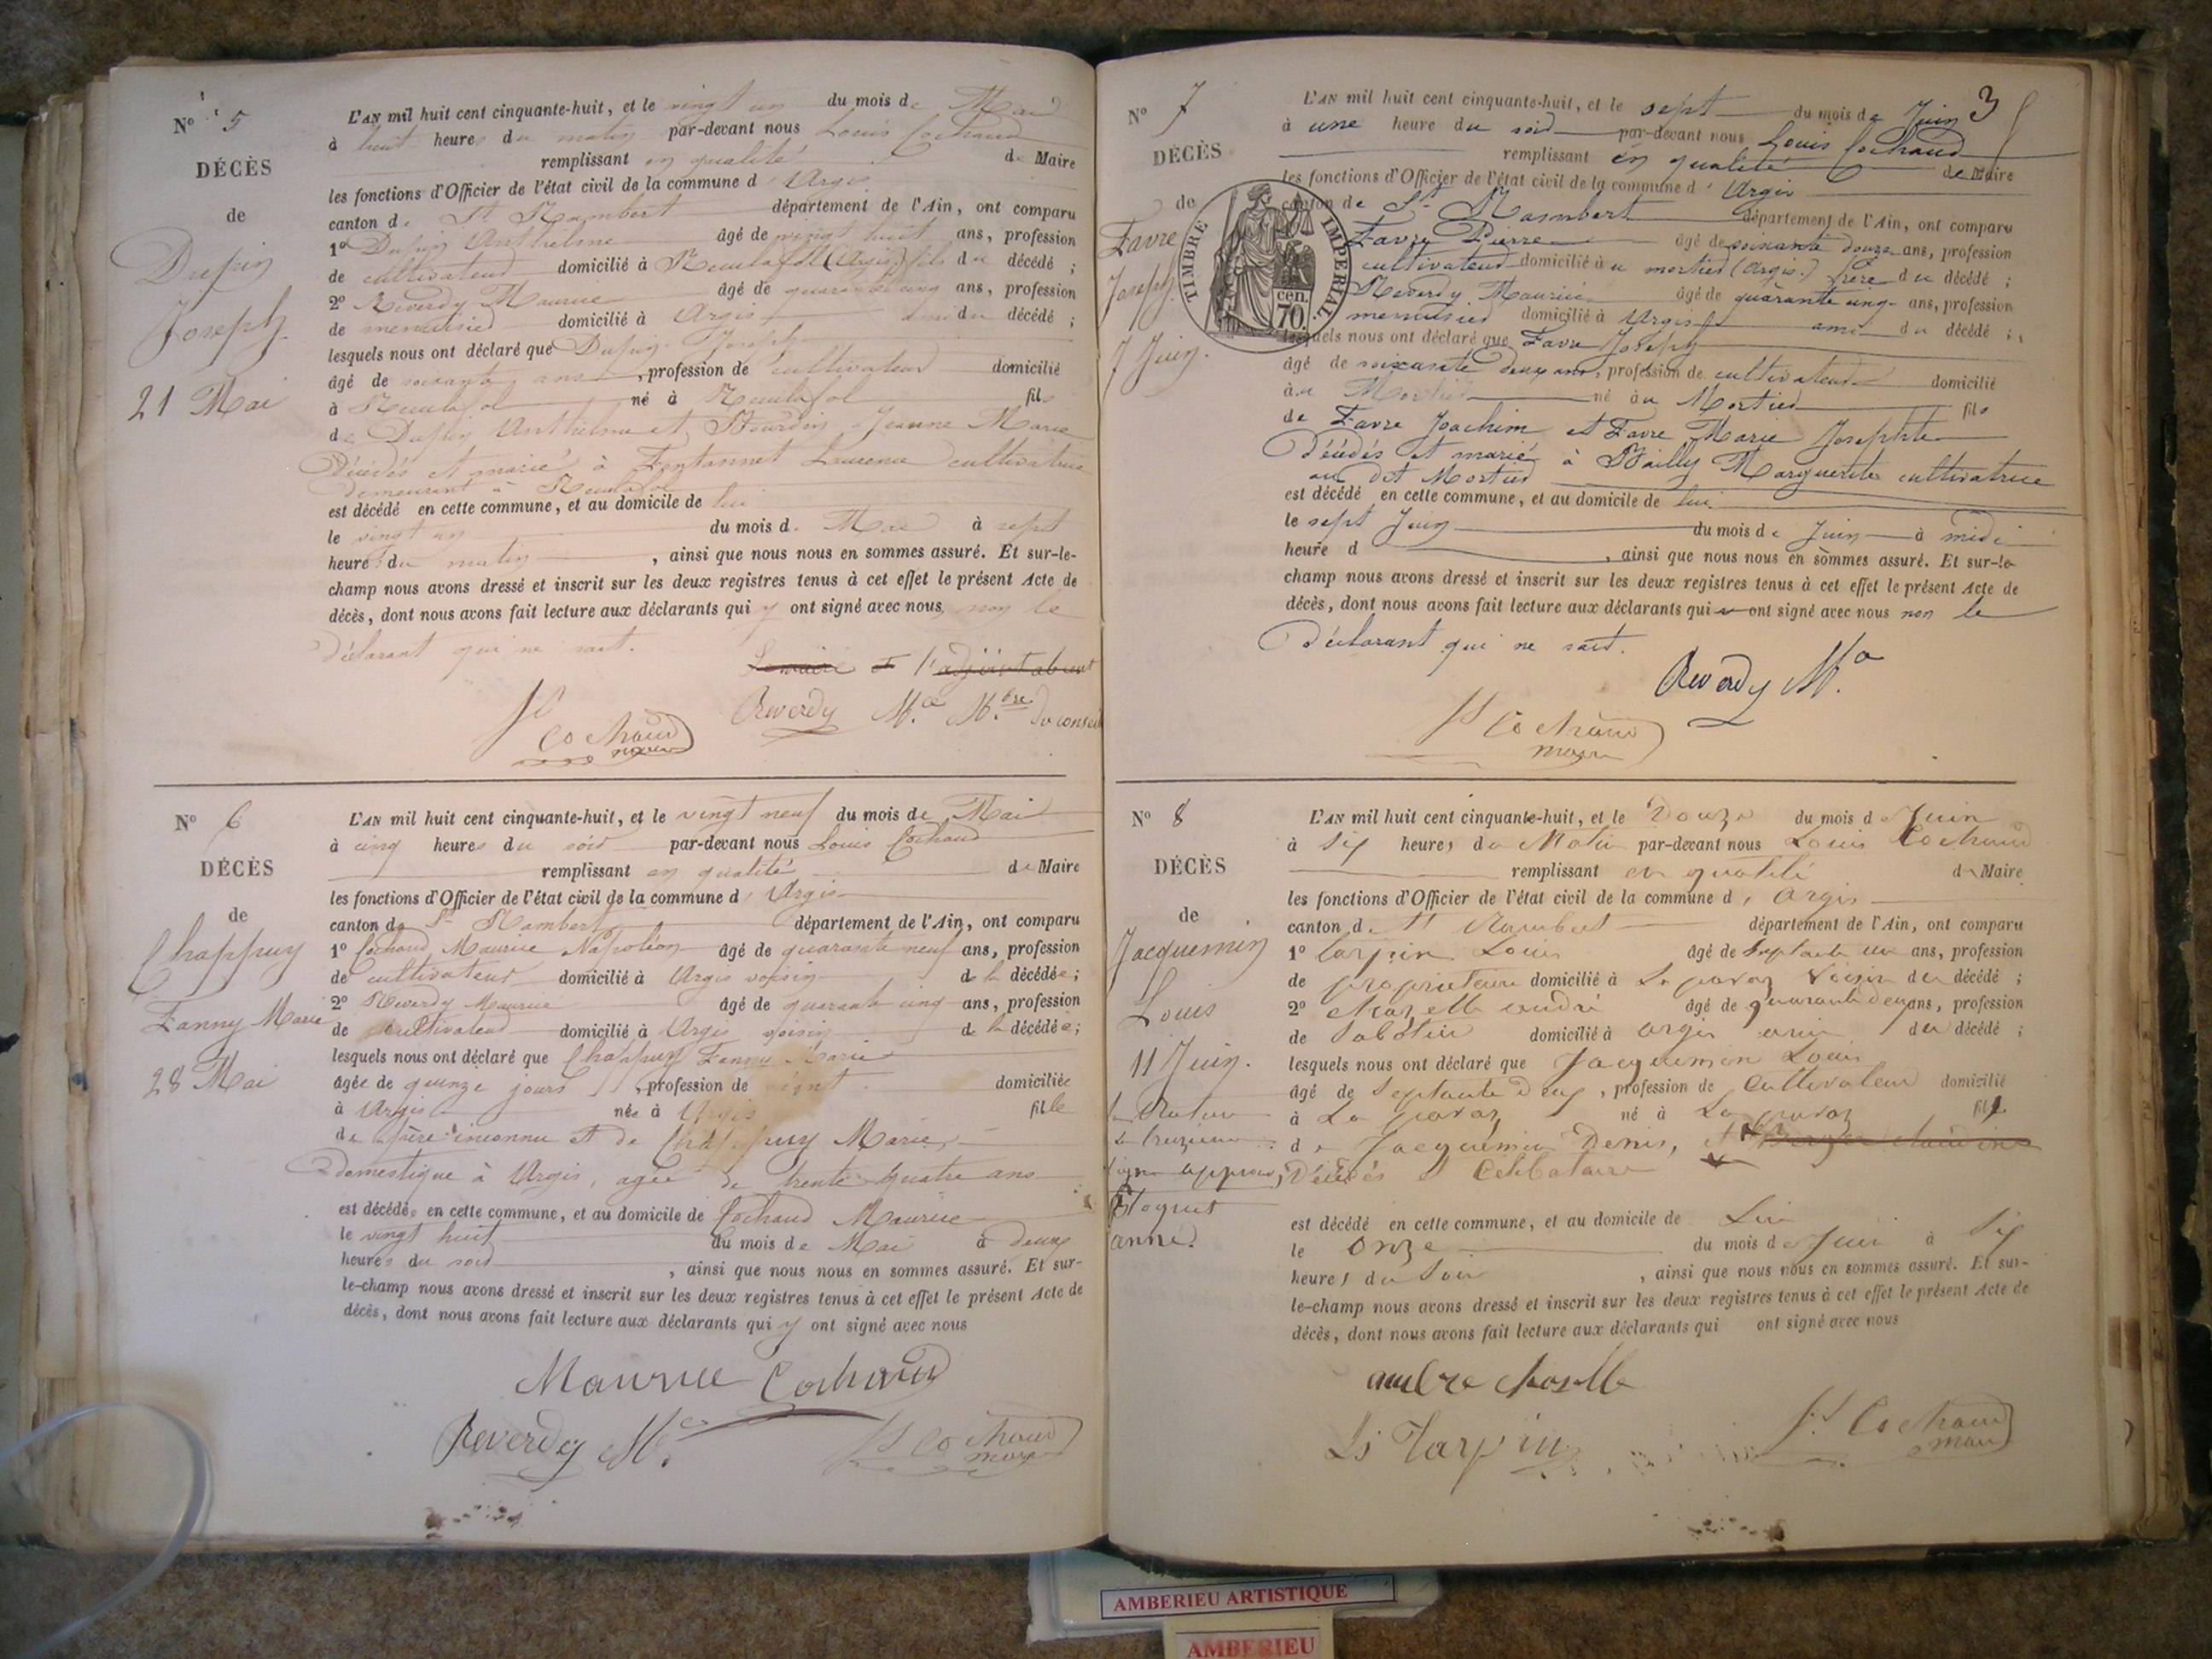 N° 5
DÉCÈS
de
Dupin
Joseph
21 Mai
L'AN mil huit cent cinquante-huit, et le vingt un du mois de Mai
à huit heures du matin par-devant nous Louis Cochaud
remplissant en qualité de Maire
les fonctions d'Officier de l'état civil de la commune d'Argis
canton de St Rambert département de l'Ain, ont comparu
1° Dupin Anthelme âgé de vingt huit ans, profession
de cultivateur domicilié à (Argis) fils du décédé ;
2° Reverdy Maurice âgé de quarante cinq ans, profession
de menuisier domicilié à Argis ami du décédé ;
lesquels nous ont déclaré que Dupin Joseph
âgé de soixante ans, profession de cultivateur domicilié
à né à fils
de Dupin Anthelme et Bourdin Jeanne Marie
Décédés et marié à Fontannet Laurence cultivatrice
demeurant à
est décédé en cette commune, et au domicile de lui
le vingt un du mois de Mai à sept
heures du matin, ainsi que nous nous en sommes assuré. Et sur-le-
champ nous avons dressé et inscrit sur les deux registres tenus à cet effet le présent Acte de
décès, dont nous avons fait lecture aux déclarants qui y ont signé avec nous, non le
Déclarant qui ne sait.
l'adjoint absent
Reverdy Mce Mbre du conseil
Cochaud
maire
N° 6
DÉCÈS
de
Chappuy
Fanny Marie
28 Mai
L'AN mil huit cent cinquante-huit, et le vingt neuf du mois de Mai
à cinq heures du soir par-devant nous Louis Cochaud
remplissant en qualité de Maire
les fonctions d'Officier de l'état civil de la commune d'Argis
canton de St Rambert département de l'Ain, ont comparu
1° Cochaud Maurice Napoléon âgé de quarante neuf ans, profession
de cultivateur domicilié à Argis voisin de la décédée ;
2° Reverdy Maurice âgé de quarante cinq ans, profession
de cultivateur domicilié à Argis voisin de la décédée ;
lesquels nous ont déclaré que Chappuy Fanny Marie
âgée de quinze jours, profession de domiciliée
à Argis née à Argis fille
de père inconnu et de Chappuy Marie,
domestique à Argis, agée de trente quatre ans
est décédée en cette commune, et au domicile de Cochaud Maurice
le vingt huit du mois de Mai à deux
heures du soir, ainsi que nous nous en sommes assuré. Et sur-
le-champ nous avons dressé et inscrit sur les deux registres tenus à cet effet le présent Acte de
décès, dont nous avons fait lecture aux déclarants qui y ont signé avec nous
Maurice Cochaud
Reverdy Mce
Cochaud
maire
3
N° 7
DÉCÈS
de
Favre
Joseph
7 Juin.
TIMBRE IMPERIAL
70 cen.
L'AN mil huit cent cinquante-huit, et le sept du mois de Juin
à une heure du soir par-devant nous Louis Cochaud
remplissant en qualité de Maire
les fonctions d'Officier de l'état civil de la commune d'Argis
canton de St Rambert département de l'Ain, ont comparu
Favre Pierre âgé de soixante douze ans, profession
cultivateur domicilié au mortier (Argis.) frère du décédé ;
Reverdy Maurice âgé de quarante cinq ans, profession
menuisier domicilié à Argis ami du décédé ;
lesquels nous ont déclaré que Favre Joseph
âgé de soixante deux ans, profession de cultivateur domicilié
au Mortier né au Mortier fils
de Favre Joachim et Favre Marie Josephte
Décédés et marié à Bailly Marguerite cultivatrice
au dit Mortier
est décédé en cette commune, et au domicile de lui
le sept Juin du mois de Juin à midi
heure d , ainsi que nous nous en sommes assuré. Et sur-le-
champ nous avons dressé et inscrit sur les deux registres tenus à cet effet le présent Acte de
décès, dont nous avons fait lecture aux déclarants qui ont signé avec nous non le
Déclarant qui ne sait.
Reverdy Mce
Cochaud
maire
N° 8
DÉCÈS
de
Jacquemin
Louis
11 Juin.
Bloquet
anne.
L'AN mil huit cent cinquante-huit, et le Douze du mois de Juin
à Six heures du Matin par-devant nous Louis Cochaud
remplissant en qualité de Maire
les fonctions d'Officier de l'état civil de la commune d'Argis
canton de St Rambert département de l'Ain, ont comparu
1° Tarpin Louis âgé de septante un ans, profession
de propriétaire domicilié à La pavaz Voisin du décédé ;
2° andré âgé de quarante deux ans, profession
de Sabotier domicilié à argis ami du décédé ;
lesquels nous ont déclaré que Jacquemin Louis
âgé de Septante deux, profession de Cultivateur domicilié
à La pavaz né à La pavaz fils
de Jacquemin Denis, et
Décédés Celibataire
est décédé en cette commune, et au domicile de Lui
le Onze du mois de Juin à Six
heures du Soir, ainsi que nous nous en sommes assuré. Et sur-
le-champ nous avons dressé et inscrit sur les deux registres tenus à cet effet le présent Acte de
décès, dont nous avons fait lecture aux déclarants qui ont signé avec nous
Ls Tarpin
Cochaud
maire
AMBERIEU ARTISTIQUE
AMBERIEU